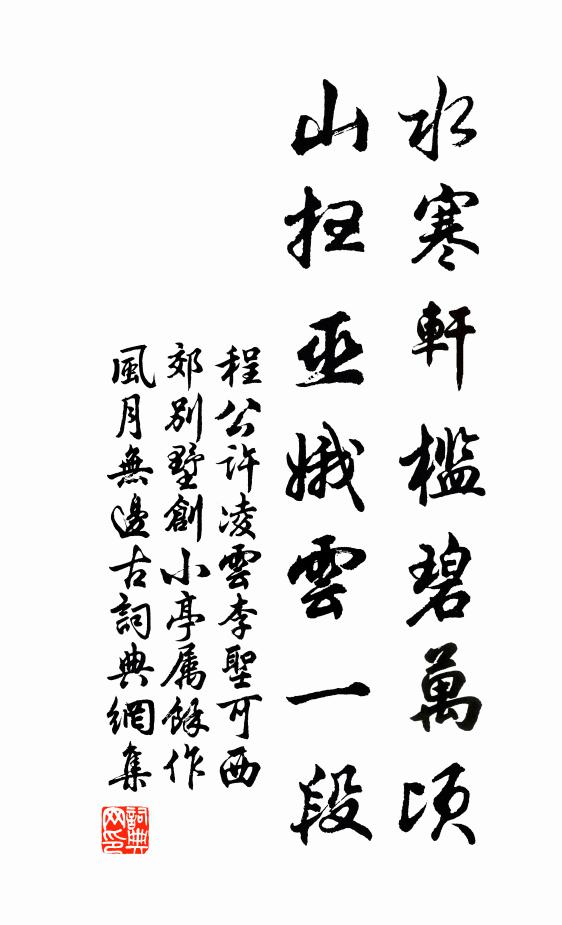 水寒軒檻碧萬頃
山抂巫娥雲一段
程公許凌雲李聖可西
郊別墅創小亭属餘作
風月無邊古詞典網集
詞典
网印